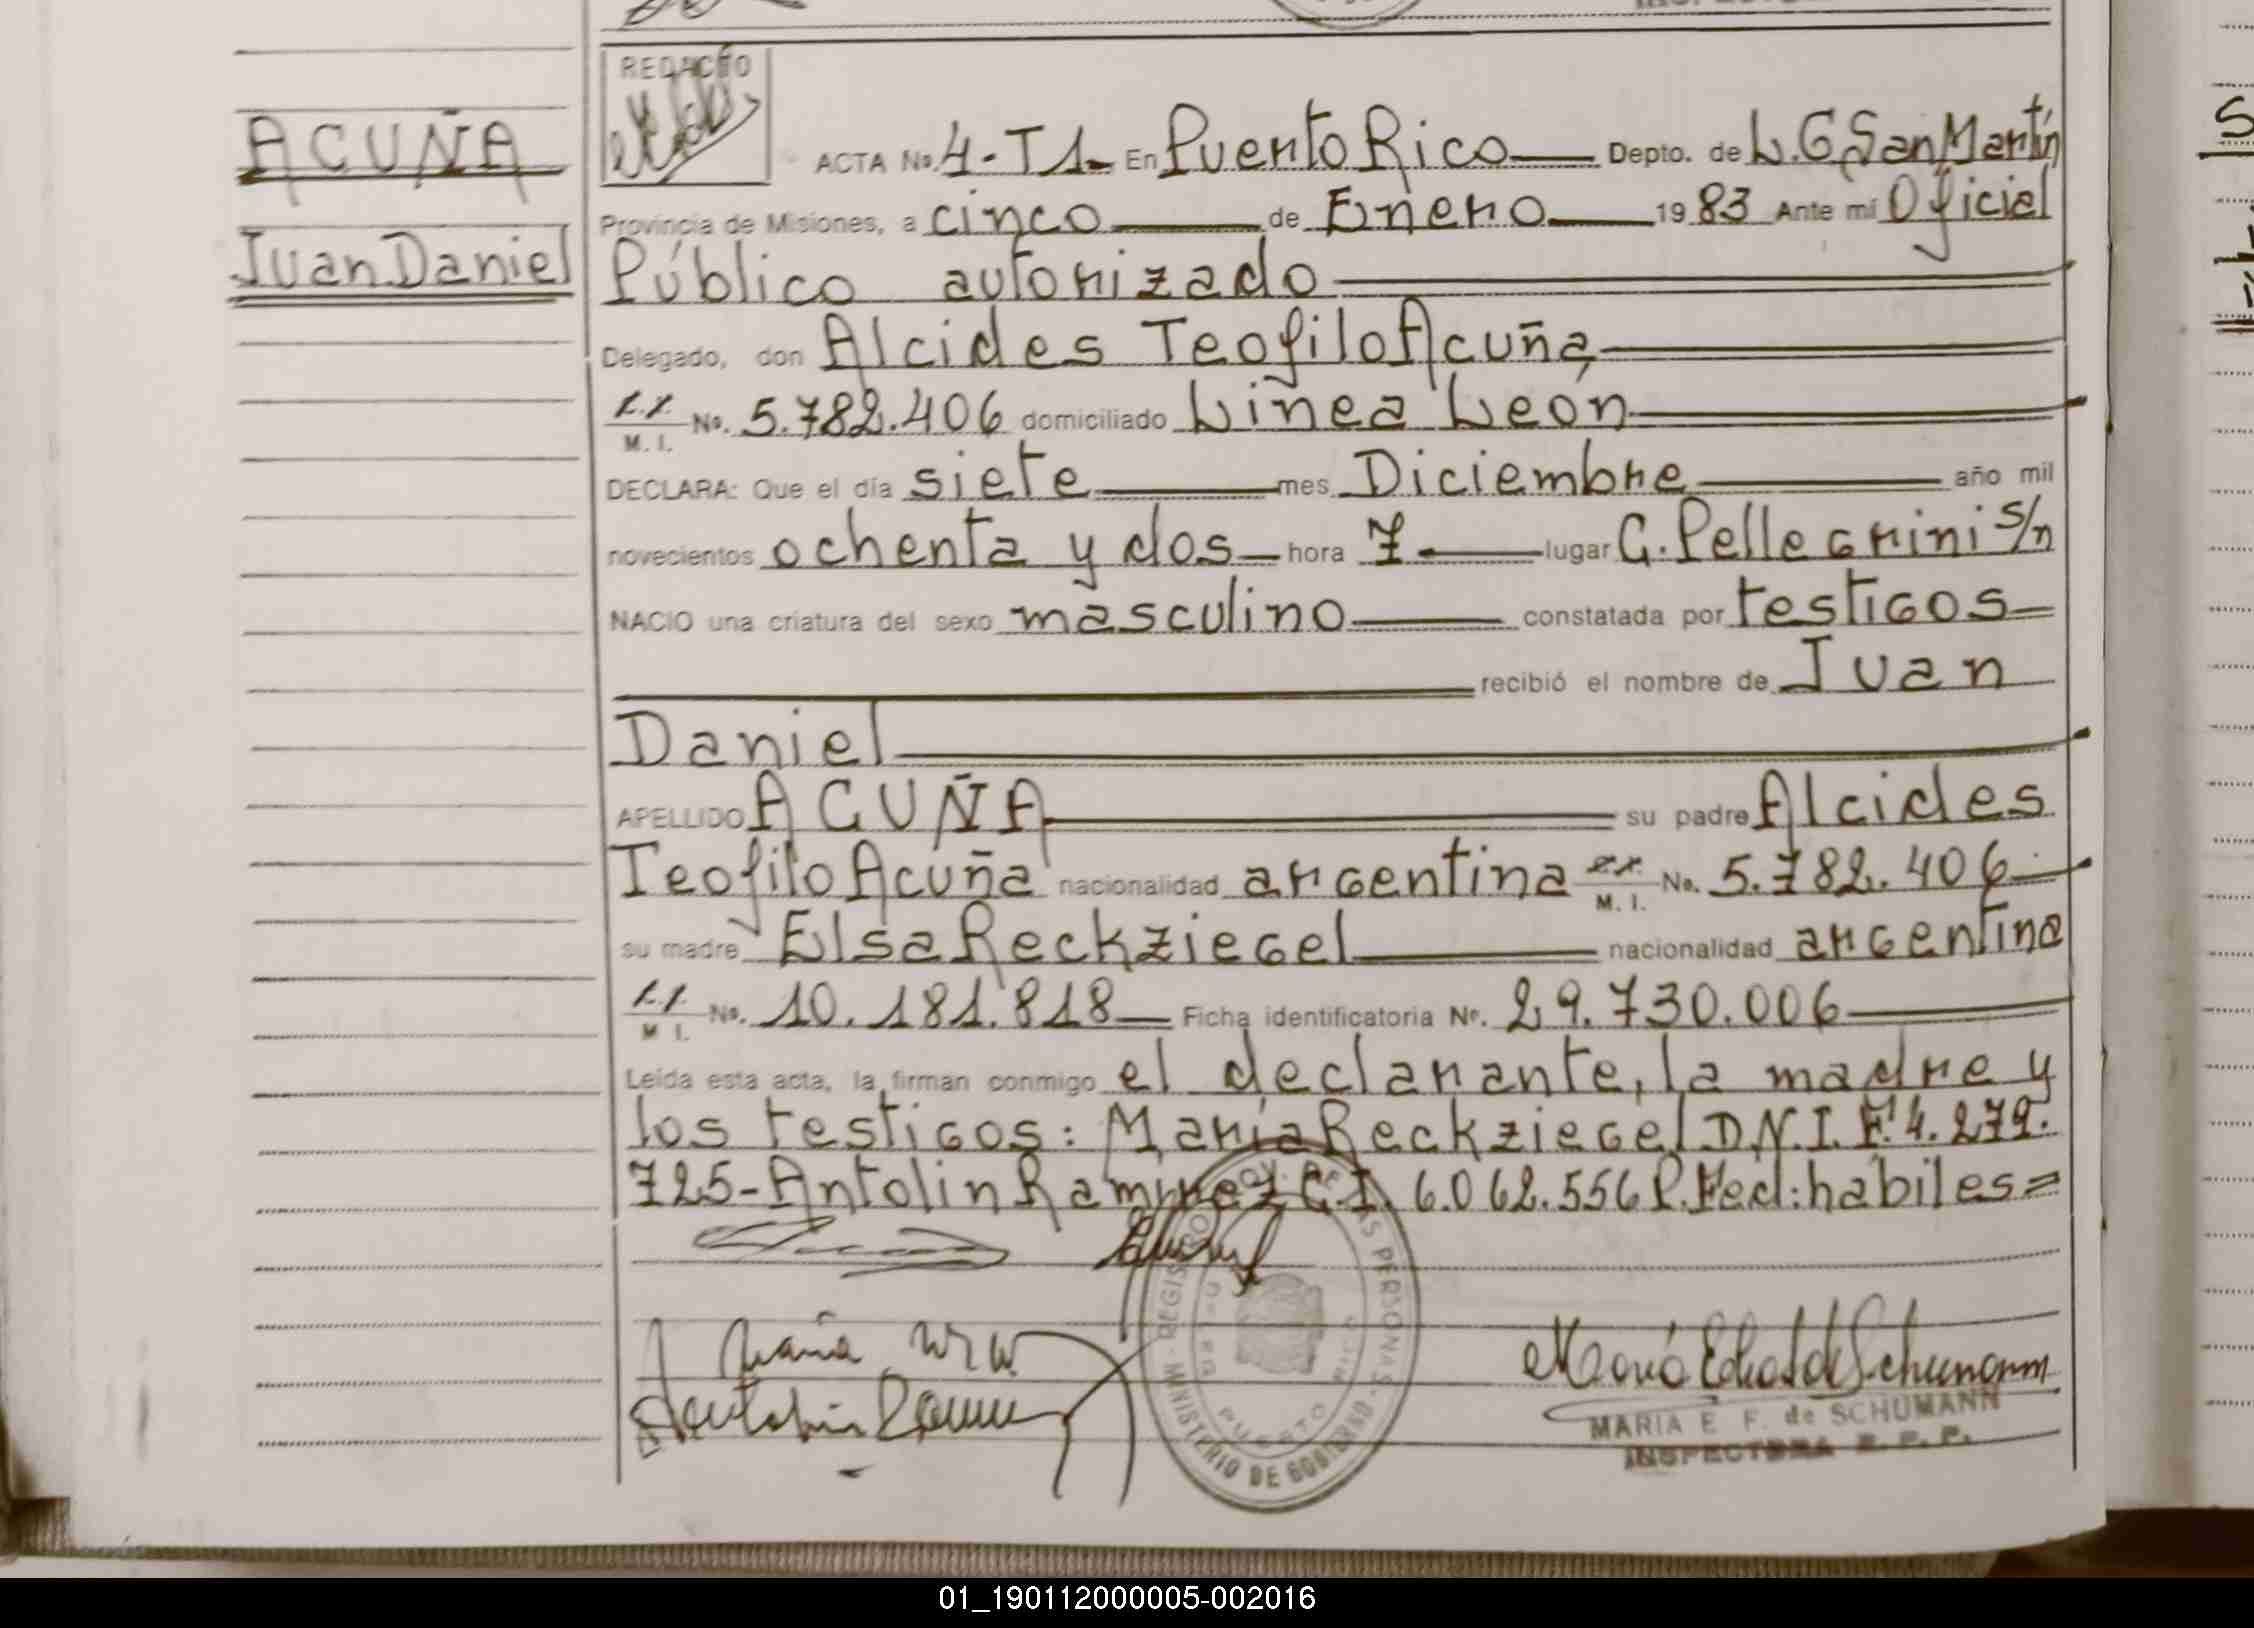 REDACTÓ
ACUÑA
Juan Daniel
ACTA No. 4-T1- En Puerto Rico Depto. de L. G. San Martín
Provincia de Misiones, a cinco de Enero 19 83 Ante mi Oficial
Público autorizado
Delegado, don Alcides Teofilo Acuña
M. I. No. 5.782.406 domiciliado Linea León
DECLARA: Que el día siete mes Diciembre año mil
novecientos ochenta y dos hora 7 lugar C. Pellegrini s/n
NACIO una criatura del sexo masculino constatada por testigos
recibió el nombre de Juan
Daniel
APELLIDO ACUÑA su padre Alcides
Teofilo Acuña nacionalidad argentina M. I. No. 5.782.406
su madre Elsa Reckziegel nacionalidad argentina
M. I. No. 10.181.818 Ficha identificatoria No. 29.730.006
Leída esta acta, la firman conmigo el declarante, la madre y
los testigos: María Reckziegel D.N.I. F. 4.279.
725-Antolin Ramirez C.I. 6.062.556 P. Fed: habiles=
MINISTERIO DE GOBIERNO - REGISTRO PERSONAS
PUERTO RICO
Antolin
MARIA E F. de SCHUMANN
INSPECTORA R. P. P.
01_190112000005-002016